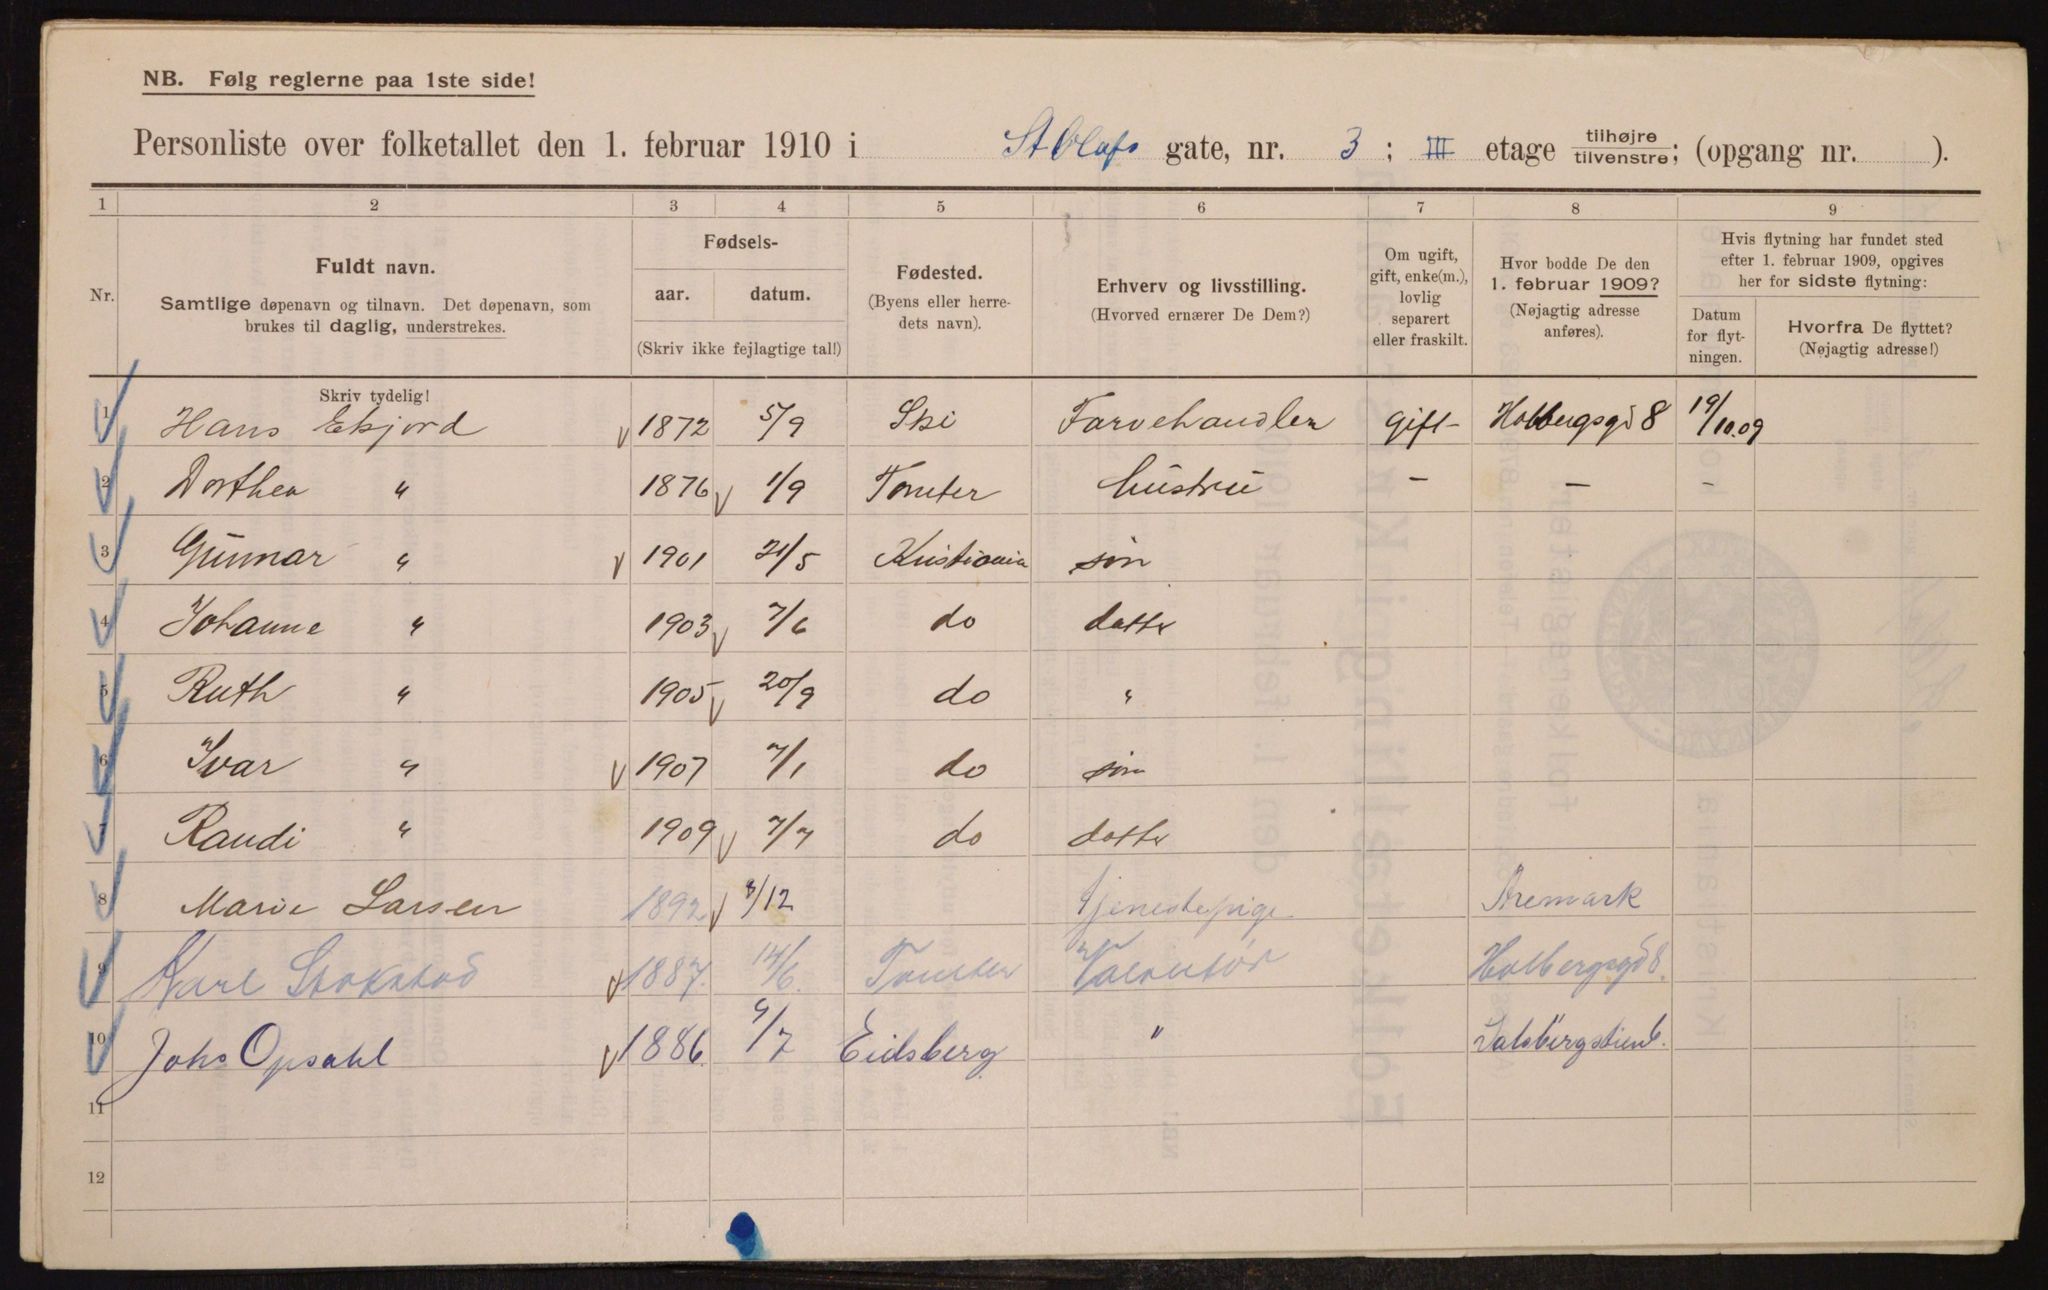 NB. Følg reglerne paa 1ste side!
Personliste over folketallet den 1. februar 1910 i St Olafs gate, nr. 3 ; III etage tilhøjre tilvenstre; (opgang nr. ).
1 2 3 4 5 6 7 8 9
Nr. Fuldt navn. Samtlige døpenavn og tilnavn. Det døpenavn, som brukes til daglig, understrekes.
Fødsels- aar. datum. (Skriv ikke fejlagtige tal!)
Fødested. (Byens eller herredets navn).
Erhverv og livsstilling. (Hvorved ernærer De Dem?)
Om ugift, gift, enke(m.), lovlig separert eller fraskilt.
Hvor bodde De den 1. februar 1909? (Nøjagtig adresse anføres).
Hvis flytning har fundet sted efter 1. februar 1909, opgives her for sidste flytning:
Datum for flytningen.
Hvorfra De flyttet? (Nøjagtig adresse!)
Skriv tydelig!
1 Hans Ekjord 1872 5/9 Ski Farvehandler gift Holbergsgd 8 19/10.09
2 Dorthea " 1876 1/9 Tomter hustru – – –
3 Gunnar " 1901 21/5 Kristiania søn
4 Johanne " 1903 7/6 do datter
5 Ruth " 1905 20/9 do "
6 Ivar " 1907 7/1 do søn
7 Randi " 1909 7/7 do datter
8 Marie Larsen 1892 /12 Tjenestepige Aremark
9 Karl Stokstad 1887. 14/6. Tomter Holbergsgd 8.
10 Johs Opsahl 1886. 9/7 Eidsberg "
11
12